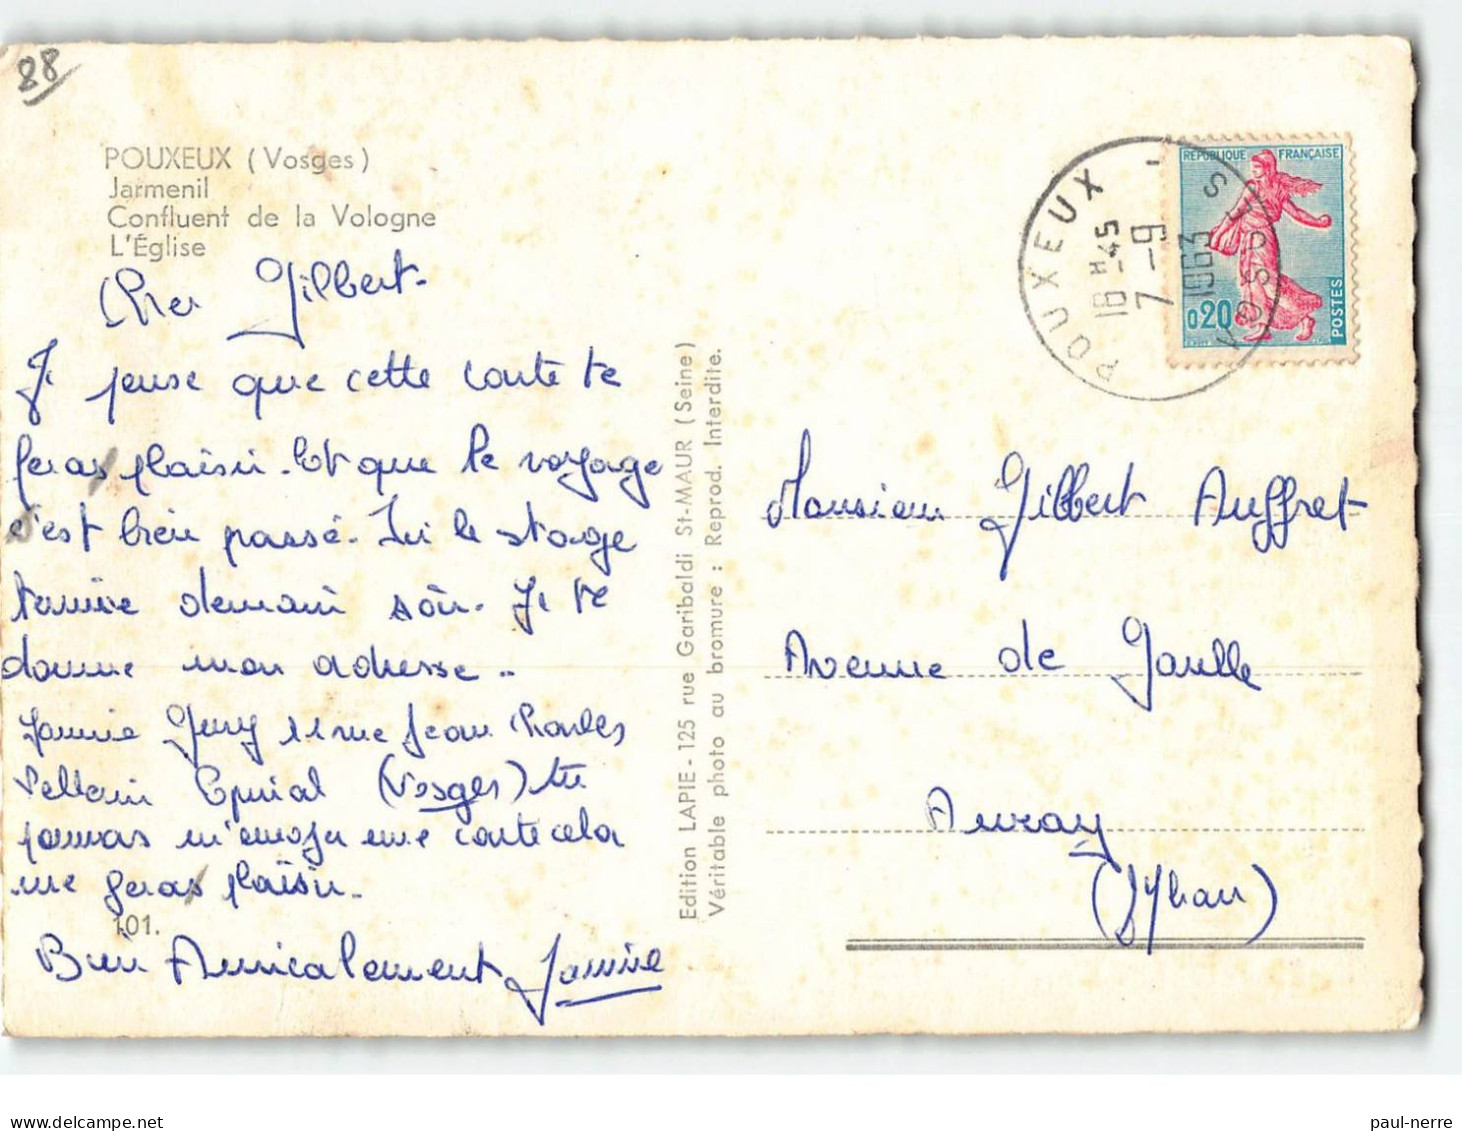 88
POUXEUX (Vosges)
Jarmenil
Confluent de la Vologne
L'Église
Cher Gilbert-
Je pense que cette carte te
feras plaisir. Et que le voyage
c'est bien passé. Ici le stage
termine demain soir. Je te
donne mon adresse..
Janine Jury 11 rue Jean Charles
Pellerin Epinal (Vosges) tu
pourras m'envoyer une carte cela
me feras plaisir.
101.
Bien Amicalement Janine
Edition LAPIE - 125 rue Garibaldi St-MAUR (Seine)
Véritable photo au bromure : Reprod. Interdite.
POUXEUX - VOSGES
18H45
7-9
1963
REPUBLIQUE FRANÇAISE
0,20
POSTES
Monsieur Gilbert Auffret
Avenue de Gaulle
Auray
(Morbihan)
paul-nerre
delcampe.net